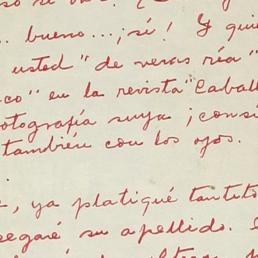 .. bueno...¡sí! Y quie
usted "de veras ría"
co" en la revista "Caball
otografía suya ¡consi
también con los ojos.
, ya platiqué tantito
egaré su apellido.